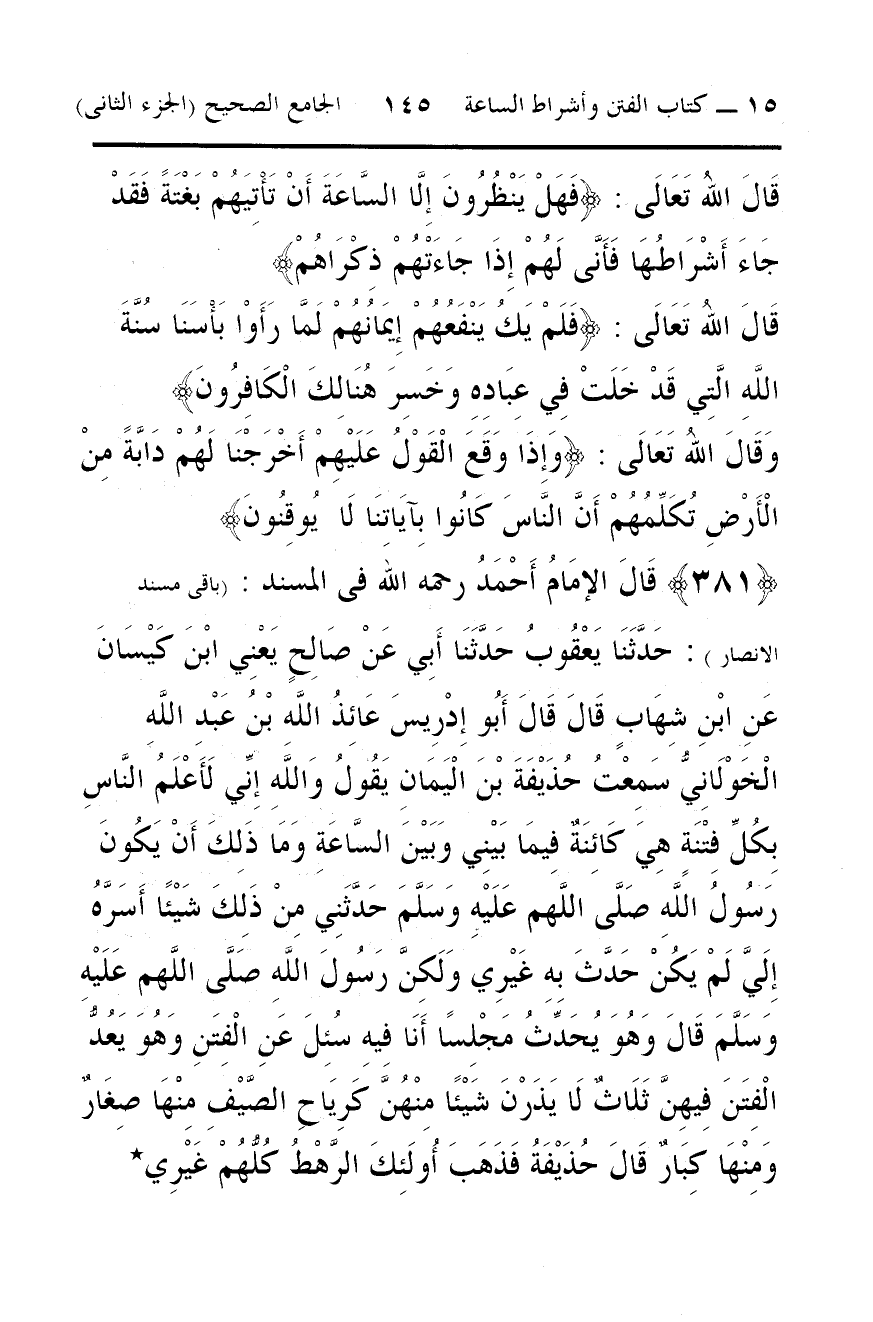 ١٥ ــ كتاب الفتن وأشراط الساعة ١٤٥ الجامع الصحيح (الجزء الثانى)
قَالَ اللهُ تَعَالَى : ﴿فَهَلْ يَنْظُرُونَ إِلَّا السَّاعَةَ أَنْ تَأْتِيَهُمْ بَغْتَةً فَقَدْ
جَاءَ أَشْرَاطُهَا فَأَنَّى لَهُمْ إِذَا جَاءَتْهُمْ ذِكْرَاهُمْ﴾
قَالَ اللهُ تَعَالَى : ﴿فَلَمْ يَكُ يَنْفَعُهُمْ إِيمَانُهُمْ لَمَّا رَأَوْا بَأْسَنَا سُنَّةَ
اللَّهِ الَّتِي قَدْ خَلَتْ فِي عِبَادِهِ وَخَسِرَ هُنَالِكَ الْكَافِرُونَ﴾
وَقَالَ اللهُ تَعَالَى : ﴿وَإِذَا وَقَعَ الْقَوْلُ عَلَيْهِمْ أَخْرَجْنَا لَهُمْ دَابَّةً مِنْ
الْأَرْضِ تُكَلِّمُهُمْ أَنَّ النَّاسَ كَانُوا بِآيَاتِنَا لَا يُوقِنُونَ﴾
﴿٣٨١﴾ قَالَ الإمَامُ أَحْمَدُ رحمه الله فى المسند : (باقى مسند
الانصار ) : حَدَّثَنَا يَعْقُوبُ حَدَّثَنَا أَبِي عَنْ صَالِحٍ يَعْنِي ابْنَ كَيْسَانَ
عَنِ ابْنِ شِهَابٍ قَالَ قَالَ أَبُو إِدْرِيسَ عَائِذُ اللَّهِ بْنُ عَبْدِ اللَّهِ
الْخَوْلَانِيُّ سَمِعْتُ حُذَيْفَةَ بْنَ الْيَمَانِ يَقُولُ وَاللَّهِ إِنِّي لَأَعْلَمُ النَّاسِ
بِكُلِّ فِتْنَةٍ هِيَ كَائِنَةٌ فِيمَا بَيْنِي وَبَيْنَ السَّاعَةِ وَمَا ذَلِكَ أَنْ يَكُونَ
رَسُولُ اللَّهِ صَلَّى اللهم عَلَيْهِ وَسَلَّمَ حَدَّثَنِي مِنْ ذَلِكَ شَيْئًا أَسَرَّهُ
إِلَيَّ لَمْ يَكُنْ حَدَّثَ بِهِ غَيْرِي وَلَكِنَّ رَسُولَ اللَّهِ صَلَّى اللهم عَلَيْهِ
وَسَلَّمَ قَالَ وَهُوَ يُحَدِّثُ مَجْلِسًا أَنَا فِيهِ سُئِلَ عَنِ الْفِتَنِ وَهُوَ يَعُدُّ
الْفِتَنَ فِيهِنَّ ثَلَاثٌ لَا يَذَرْنَ شَيْئًا مِنْهُنَّ كَرِيَاحِ الصَّيْفِ مِنْهَا صِغَارٌ
وَمِنْهَا كِبَارٌ قَالَ حُذَيْفَةُ فَذَهَبَ أُولَئِكَ الرَّهْطُ كُلُّهُمْ غَيْرِي*